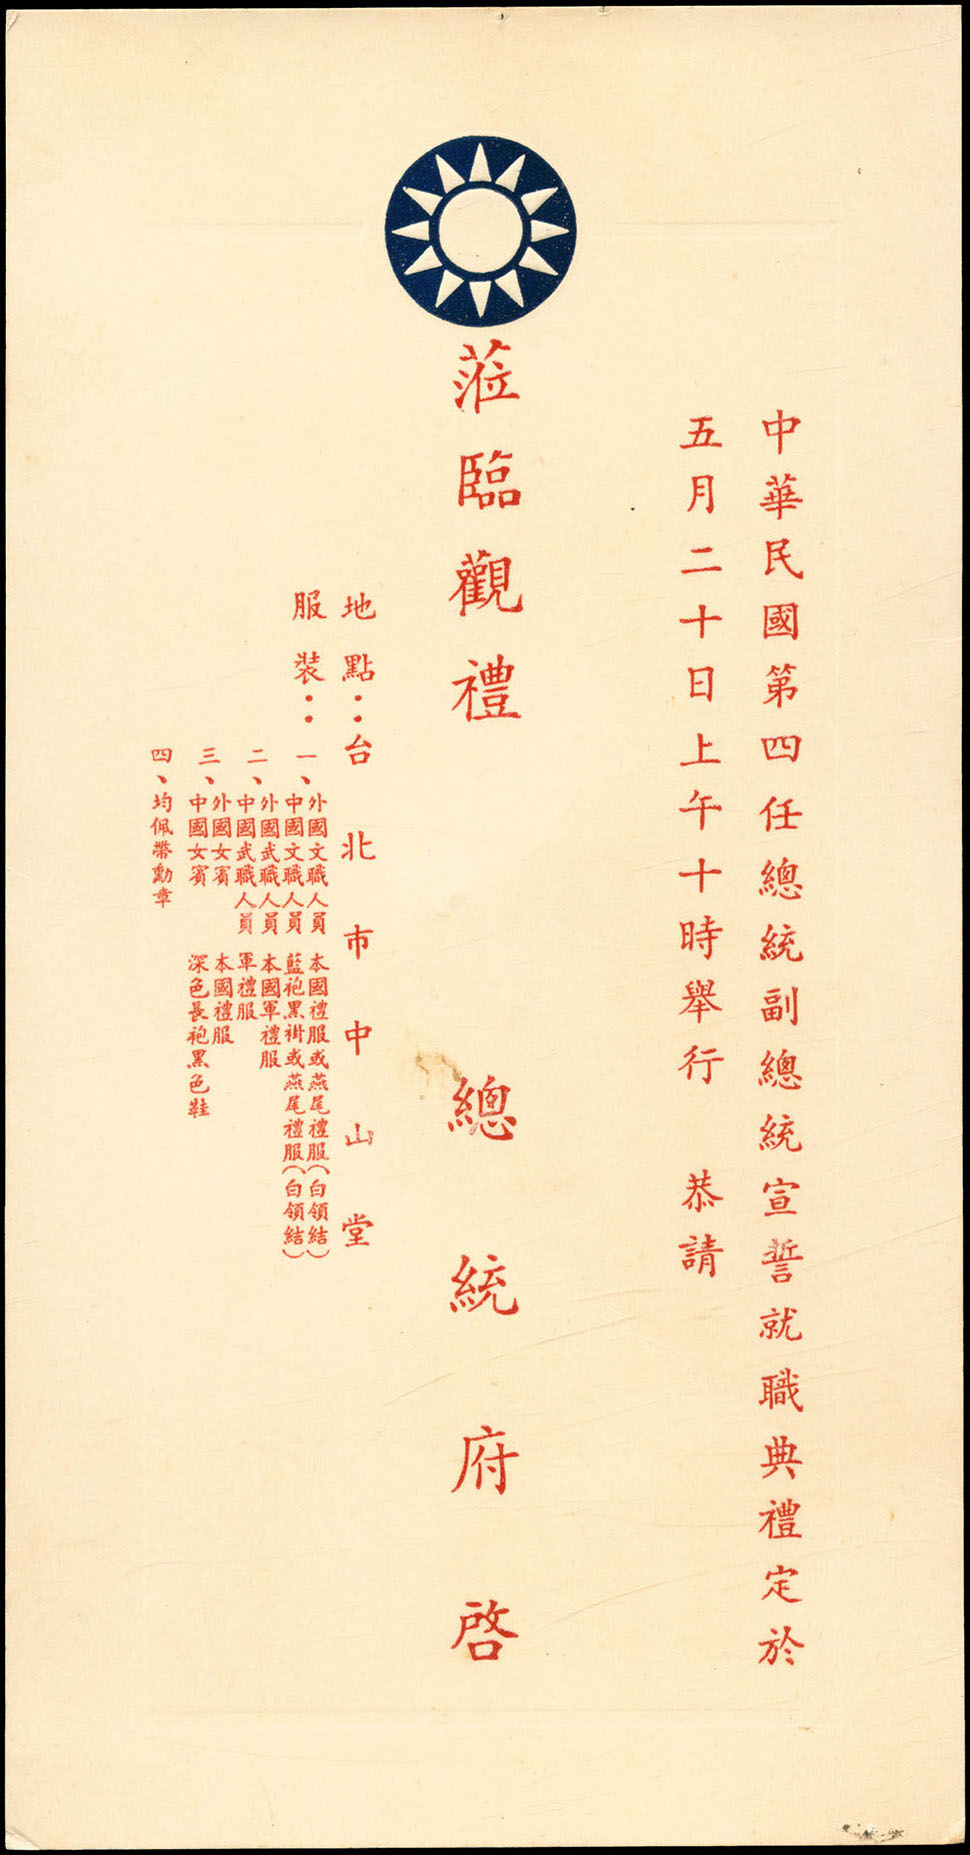 中華民國第四任總統副總統宣誓就職典禮定於
五月二十日上午十時舉行 恭請
蒞臨觀禮 總統府啓
地點：台北市中山堂
服裝：
一、外國文職人員 本國禮服或燕尾禮服（白領結）
中國文職人員 藍袍黑褂或燕尾禮服（白領結）
二、外國武職人員 本國軍禮服
中國武職人員 軍禮服
三、外國女賓 本國禮服
中國女賓 深色長袍黑色鞋
四、均佩帶勳章